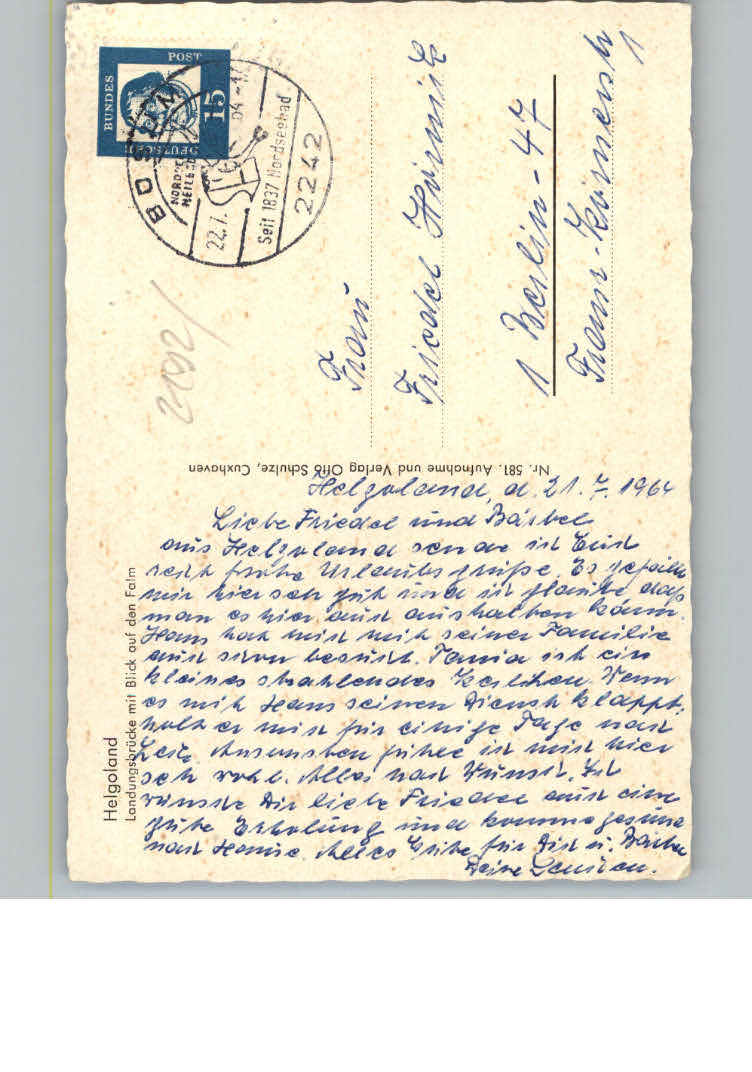 Helgoland
Landungsbrücke mit Blick auf den Falm
Nr. 581. Aufnahme und Verlag Otto Schulze, Cuxhaven
DEUTSCHE
BUNDES
POST
15
BÜSUM
NORD
HEILBAD
22.7.
64
Seit 1837 Nordseebad
2242
2192/
Frau
Friedel
1 Berlin-47
Franz-Körnerstr
1
Helgoland, d. 21.7.1964
Liebe Friedel und Bärbel
aus Helgoland sende ich Euch
recht frohe Urlaubsgrüße. Es gefällt
mir hier sehr gut und ich glaube daß
man es hier auch aushalten kann.
Hans hat mich mit seiner Familie
auch schon besucht. Tania ist ein
kleines strahlendes Kerlchen. Wenn
es mit Hans seinen Dienst klappt,
holt er mich für einige Tage nach
Ansonsten fühle ich mich hier
sehr wohl. Alles nach Wunsch. Ich
wünsche Dir liebe Friedel auch eine
gute Erholung und komme gesund
nach Hause. Alles Gute für Dich u. Bärbel
Deine